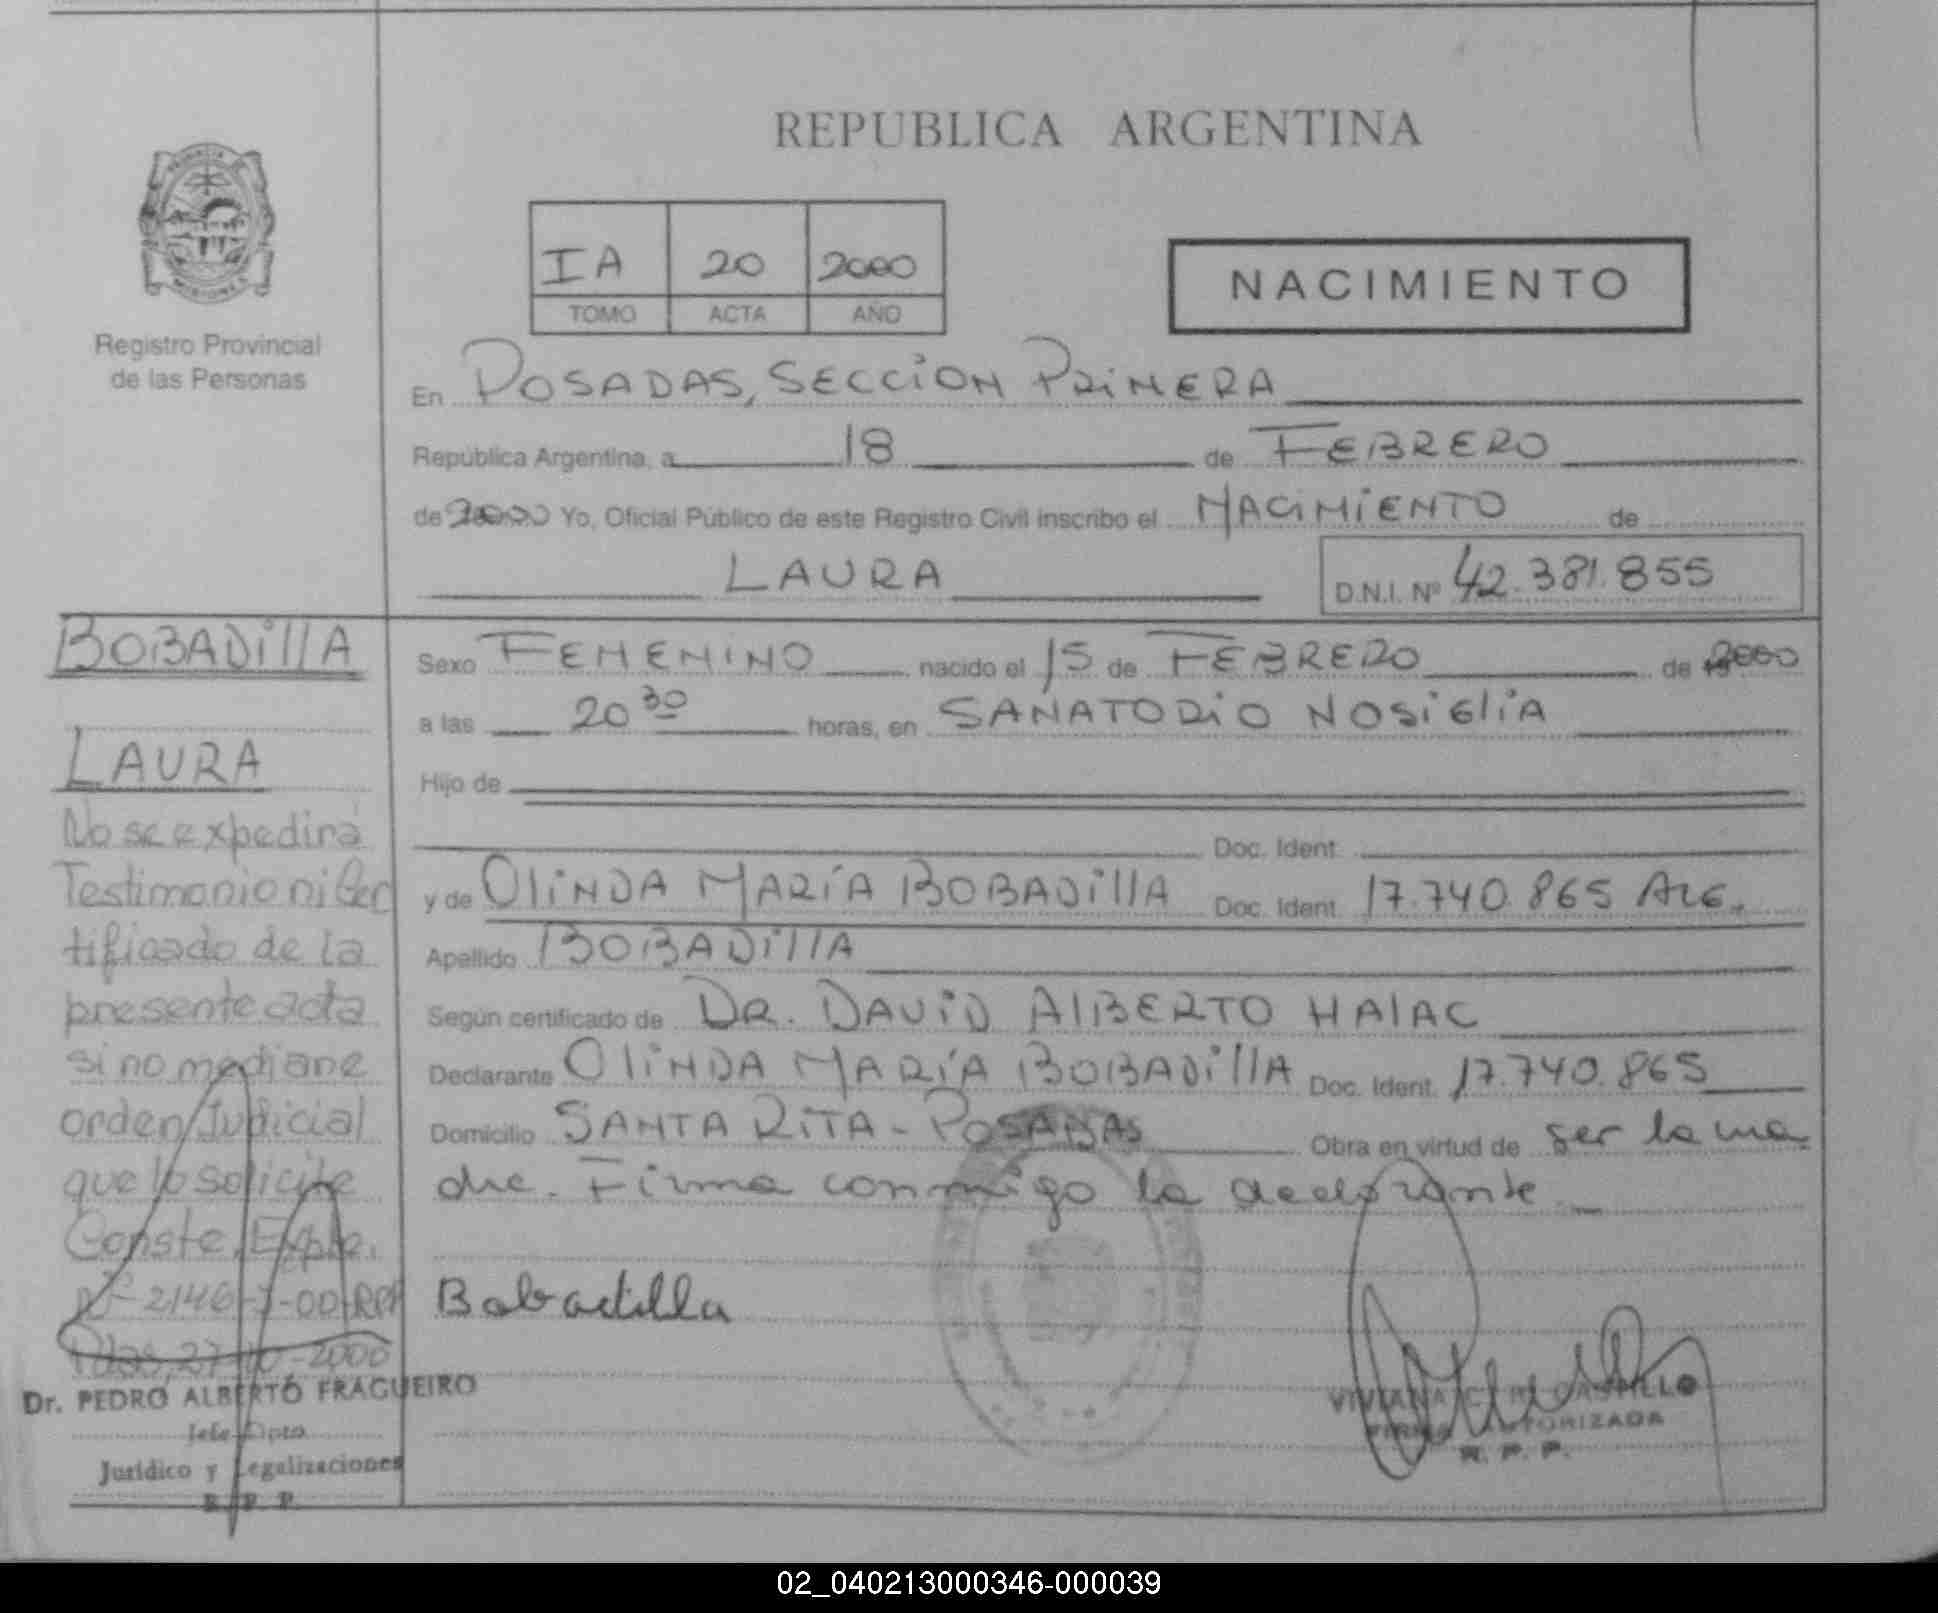 REPUBLICA ARGENTINA
IA 20 2000
TOMO ACTA AÑO
NACIMIENTO
MISIONES
Registro Provincial
de las Personas
En POSADAS, SECCION PRIMERA
República Argentina, a 18 de FEBRERO
de 2000 Yo, Oficial Público de este Registro Civil inscribo el NACIMIENTO de
LAURA D.N.I. Nº 42.381.855
Sexo FEMENINO nacido el 15 de FEBRERO de 2000
a las 20 30 horas, en SANATORIO NOSIGLIA
Hijo de
Doc. Ident.
y de OLINDA MARÍA BOBADILLA Doc. Ident. 17.740.865 ARG.
Apellido BOBADILLA
Según certificado de DR. DAVID ALBERTO HALAC
Declarante OLINDA MARÍA BOBADILLA Doc. Ident. 17.740.865
Domicilio SANTA RITA - POSADAS Obra en virtud de ser la ma
dre. Firma conmigo la declarante
Bobadilla
VIVIANA CASTILLO
FIRMA AUTORIZADA
R. P. P.
BOBADILLA
LAURA
No se expedirá
Testimonio ni Cer
tificado de la
presente acta
si no mediane
orden Judicial
que lo solicite
Conste. Expte.
Nº 2146-
Pdas, 27-10-2000
Dr. PEDRO ALBERTO FRAGUEIRO
Jefe Dpto.
Jurídico y Legalizaciones
R. P. P.
02_040213000346-000039